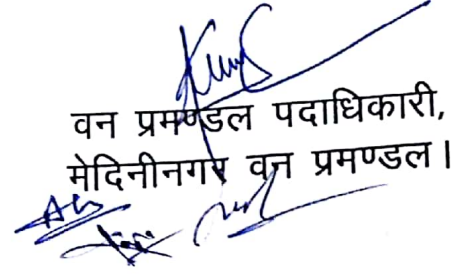 वन प्रमण्डल पदाधिकारी,
मेदिनीनगर वन प्रमण्डल।